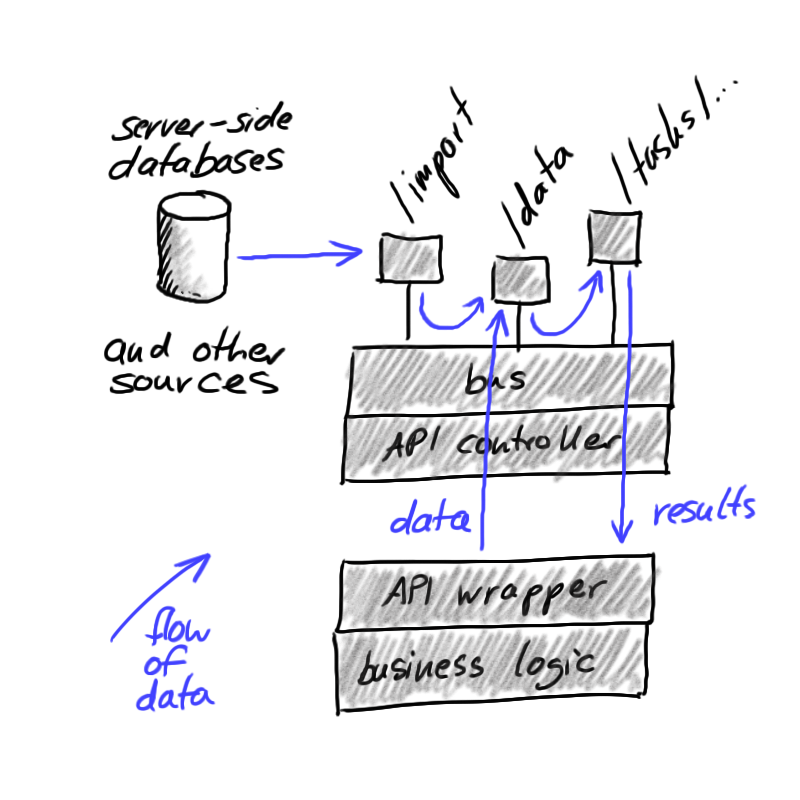 server-side
databases
and other
sources
/import
/data
/tasks/...
bus
API controller
data
results
API wrapper
business logic
flow
of
data